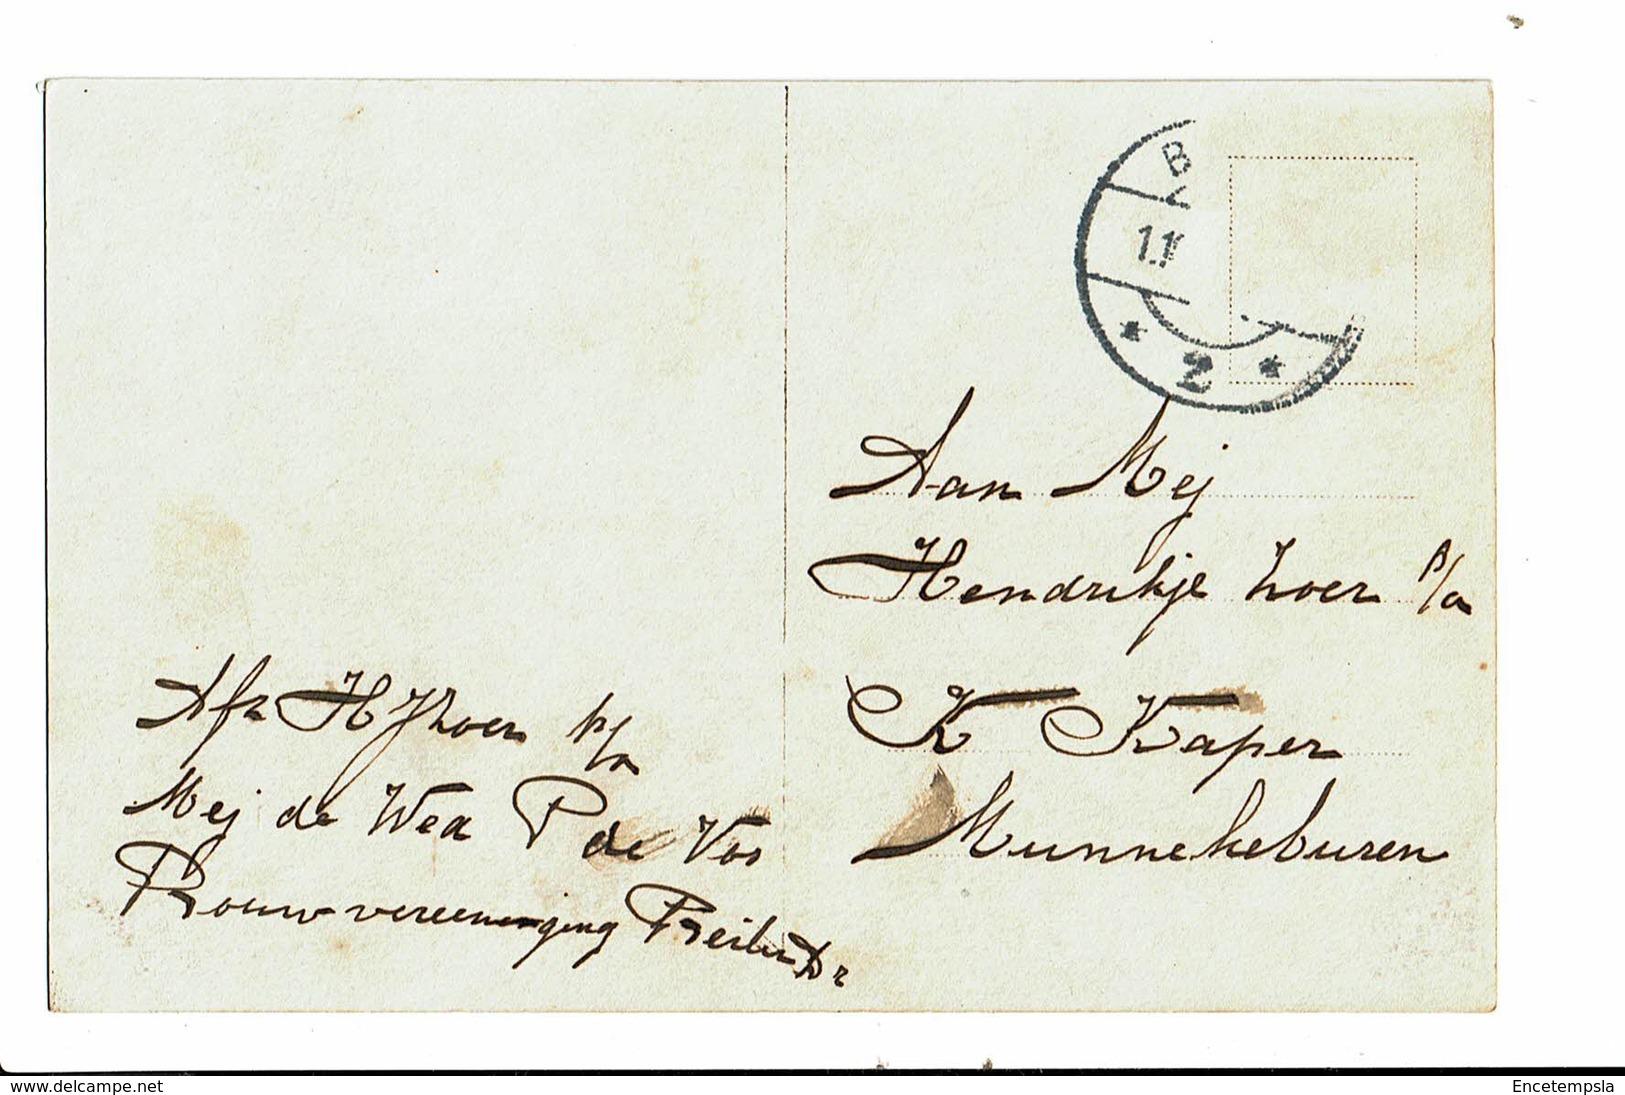 B
1.1
2
Aan Mej
Hendrikje Zwer p/a
K Kaper
Munnekeburen
Afz H J Zwer p/a
Mej de Wed P de Vos
Bouwvereeniging
www.delcampe.net
Encetempsla